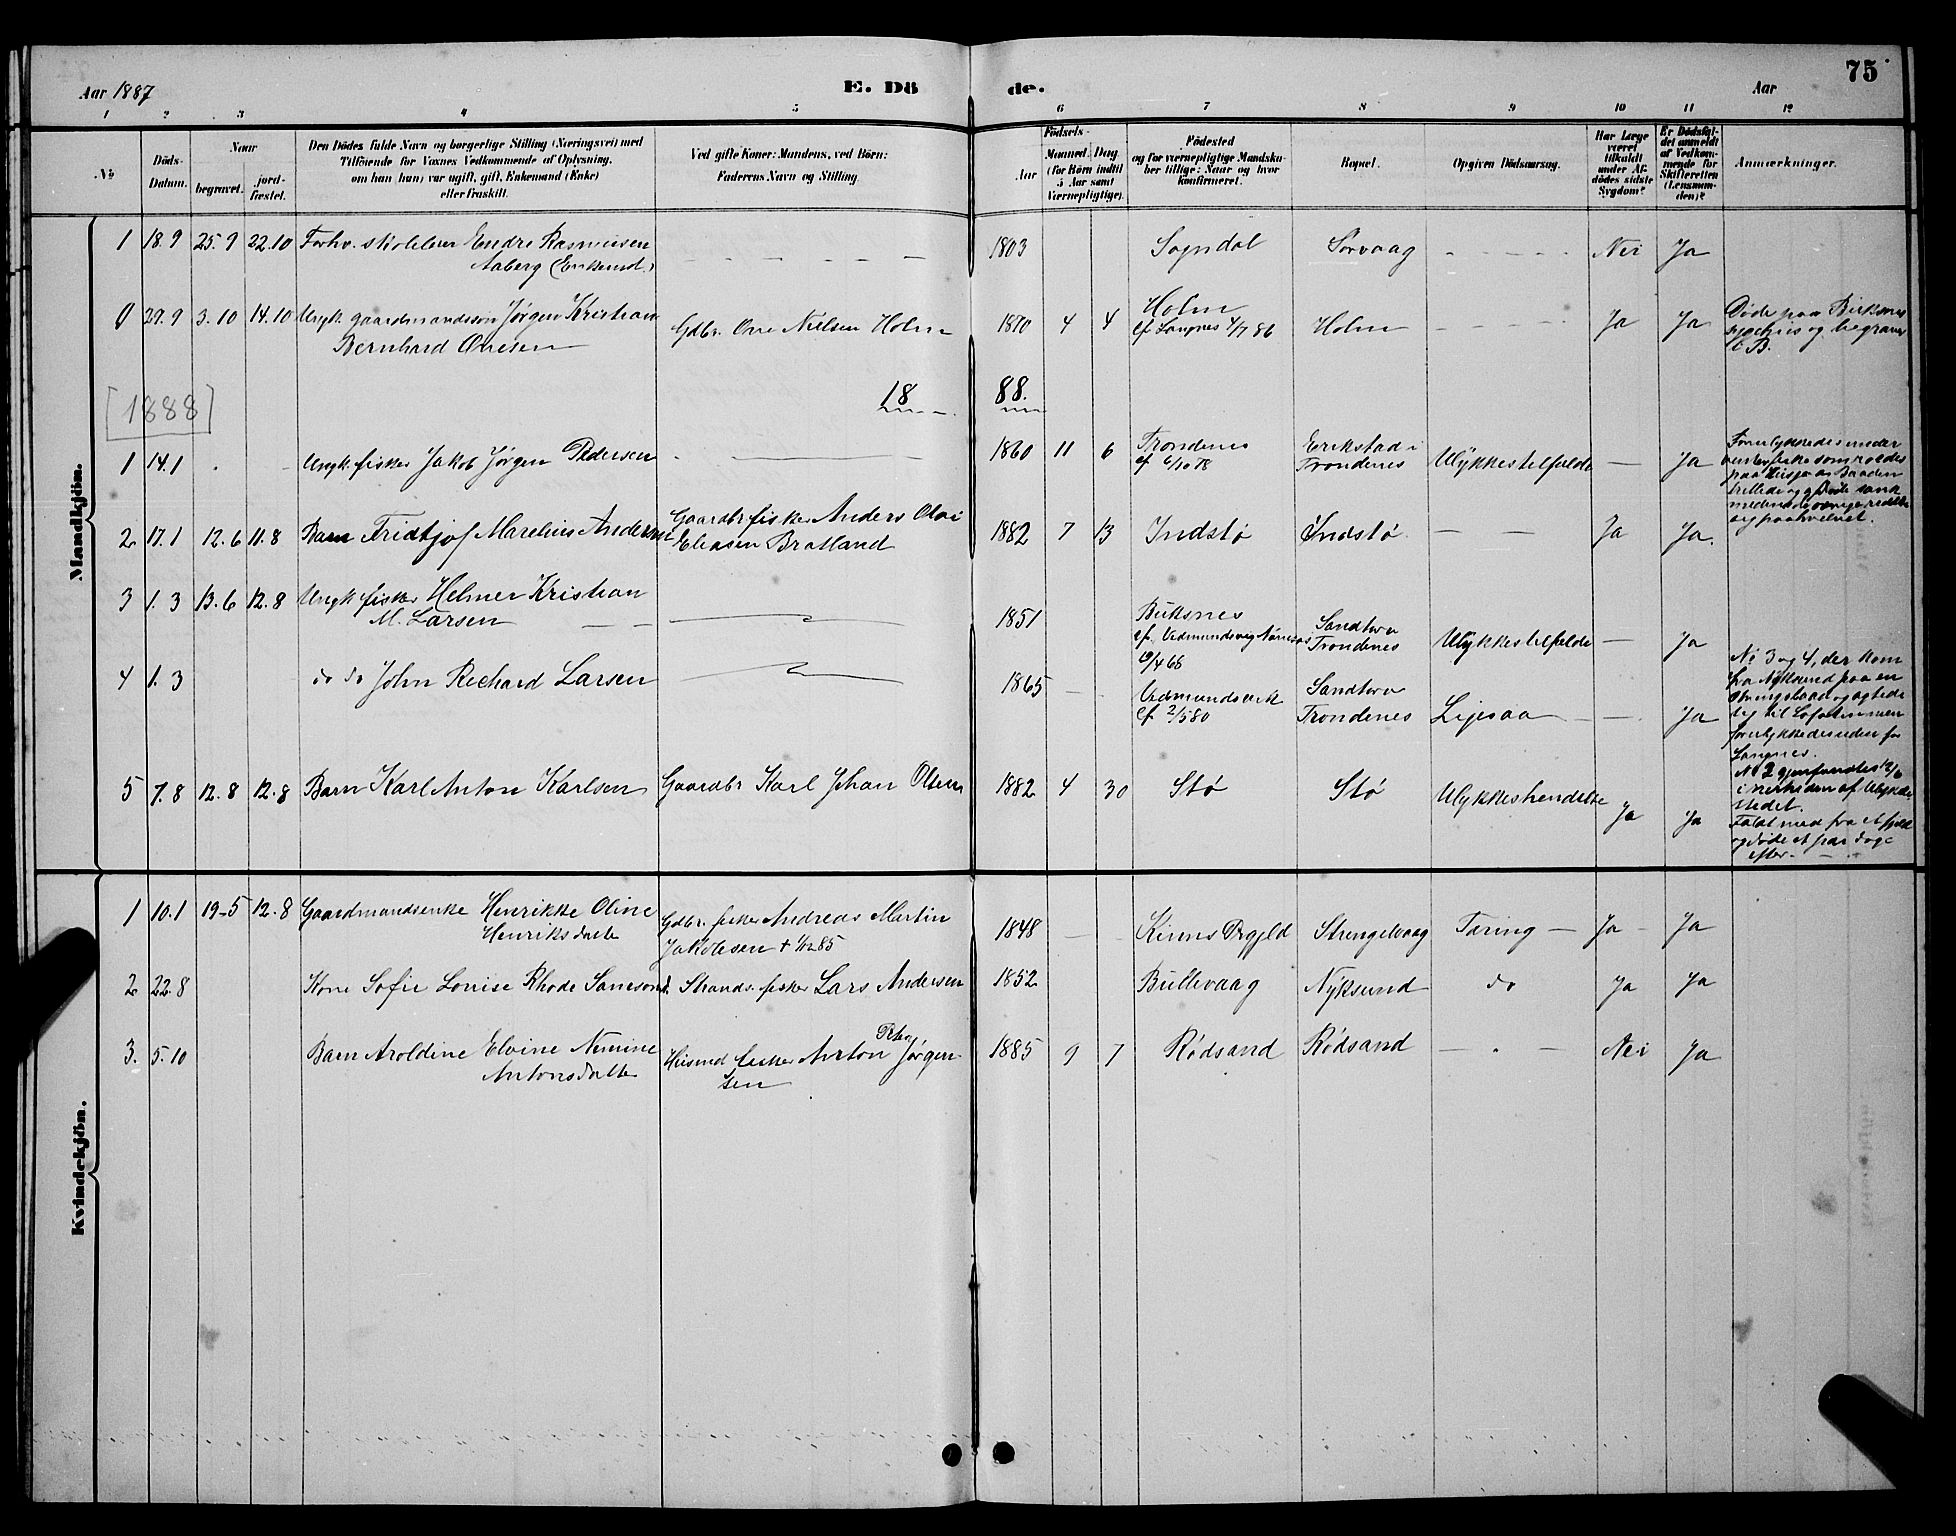 75
Aar 1887
E. Dö
de.
Aar
1 2 3 4 5 6 7 8 9 10 11 12
№
Döds-
Datum.
Naar
begravet.
jord-
fæstet.
Den Dödes fulde Navn og borgerlige Stilling (Næringsvei) med
Tilföiende for Voxnes Vedkommende af Oplysning,
om han (hun) var ugift, gift, Enkemand (Enke)
eller fraskilt.
Ved gifte Koner: Mandens, ved Börn:
Faderens Navn og Stilling.
Födsels-
Aar
Maaned Dag
(for Börn indtil
5 Aar samt
Værnepligtige).
Födested
og for værnepligtige Mandsku-
ber tillige: Naar og hvor
konfirmeret.
Bopæl.
Opgiven Dödsaarsag.
Har Læge
været
tilkaldt
under Af-
dödes sidste
Sygdom?
Er Dödsfal-
det anmeldt
af Vedkom-
mende for
Skifteretten
(Lensman-
den)?
Anmærkninger.
Mandkjön.
1 18.9 25.9 22.10 Forhv. skolelærer Endre Rasmussen
Aaberg (Enkemd.)
1803 Sogndal Sørvaag Nei Ja
0 27.9 3.10 14.10 Ungk. gaardmandssøn Jørgen Kristian
Bernhard Ovesen
Gdbr. Ove Nielsen Holm
1870 4 4 Holm
cf Langnes 4/7 86
Holm Ja Ja
Døde paa Buksnes
sygehus og begraves
i B.
[1888]
18 88.
1 14.1 Ungk. fisker Jakob Jørgen Pedersen
1860 11 6 Trondenes
cf 6/10 78
Erikstad i
Trondenes
Ulykkestilfælde — Ja
Forulykkedes under
2 17.1 12.6 11.8 Barn Fridtjof Marelius Andersen
Gaardbr fisker Anders Olai
Eliasen Bratland
1882 7 13 Indstø Indstø Ja Ja.
3 1.3 13.6 12.8 Ungk fisker Helmer Kristian
M. Larsen
1851 Buksnes
19/4 68
Sandtorv
Trondenes
Ulykkestilfælde — Ja
4 1.3 do do John Richard Larsen
1865
cf 2/5 80
Sandtorv
Trondenes
Ligesaa — Ja
No 3 og 4, der kom
fra Nyksund paa en
til Lofoten men
forulykkedes uden for
Langnes.
No 2 gjenfandtes 12/6
i nærheden af Ulykke-
stedet.
5 7.8 12.8 12.8 Barn Karl Anton Karlsen
Gaardbr Karl Johan Olsen
1882 4 30 Stø Stø Ulykkeshendelse Ja Ja
Faldt ned fra et fjeld
og døde et par dage
efter.
Kvindekjön.
1 10.1 19-5 12.8 Gaardmandsenke Henrikke Oline
Henriksdatte
Gdbr. fisker Andreas Martin
Jakobsen + 1/12 85
1848 Kinns Prgjeld Strengelvaag Tæring — Ja - Ja
2 22.8 Kone Sofie Louise Rhode Samsond.
Strands. fisker Lars Andersen
1852 Nyksund do Ja Ja
3. 5.10 Barn Aroldine Elvine Nemine
Antonsdatte
Husmd fisker Anton Peter Jørgen-
sen
1885 9 7 Rødsand Rødsand Nei Ja